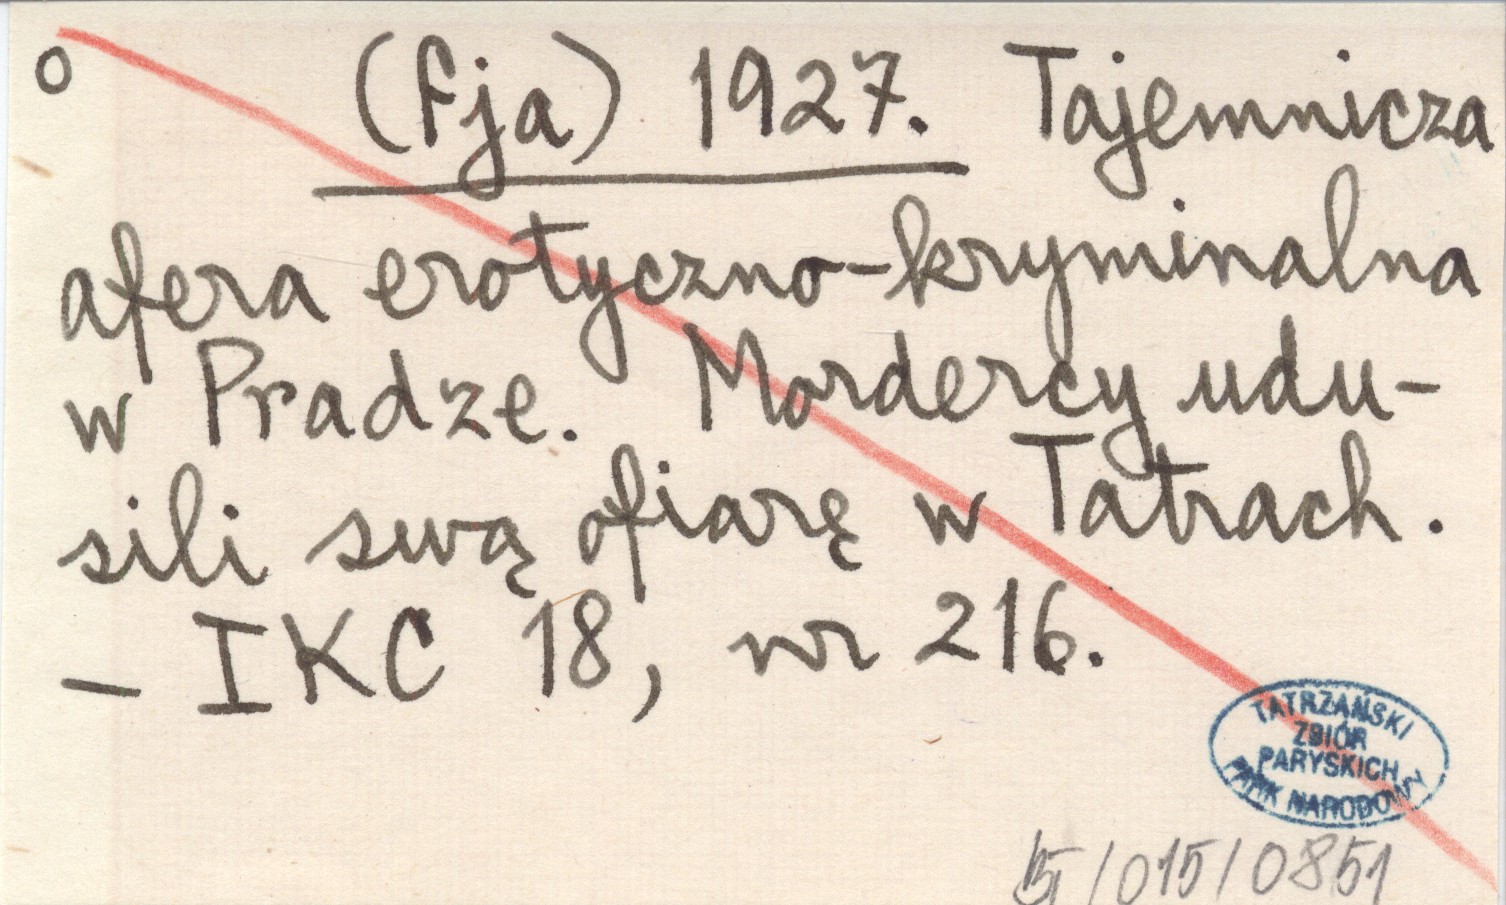 o (fja) 1927. Tajemnicza
afera erotyczno-kryminalna
w Pradze. Mordercy udu-
sili swą ofiarę w Tatrach.
- IKC 18, nr 216.
TATRZAŃSKI
ZBIÓR
PARYSKICH
PARK NARODOWY
/015/0851